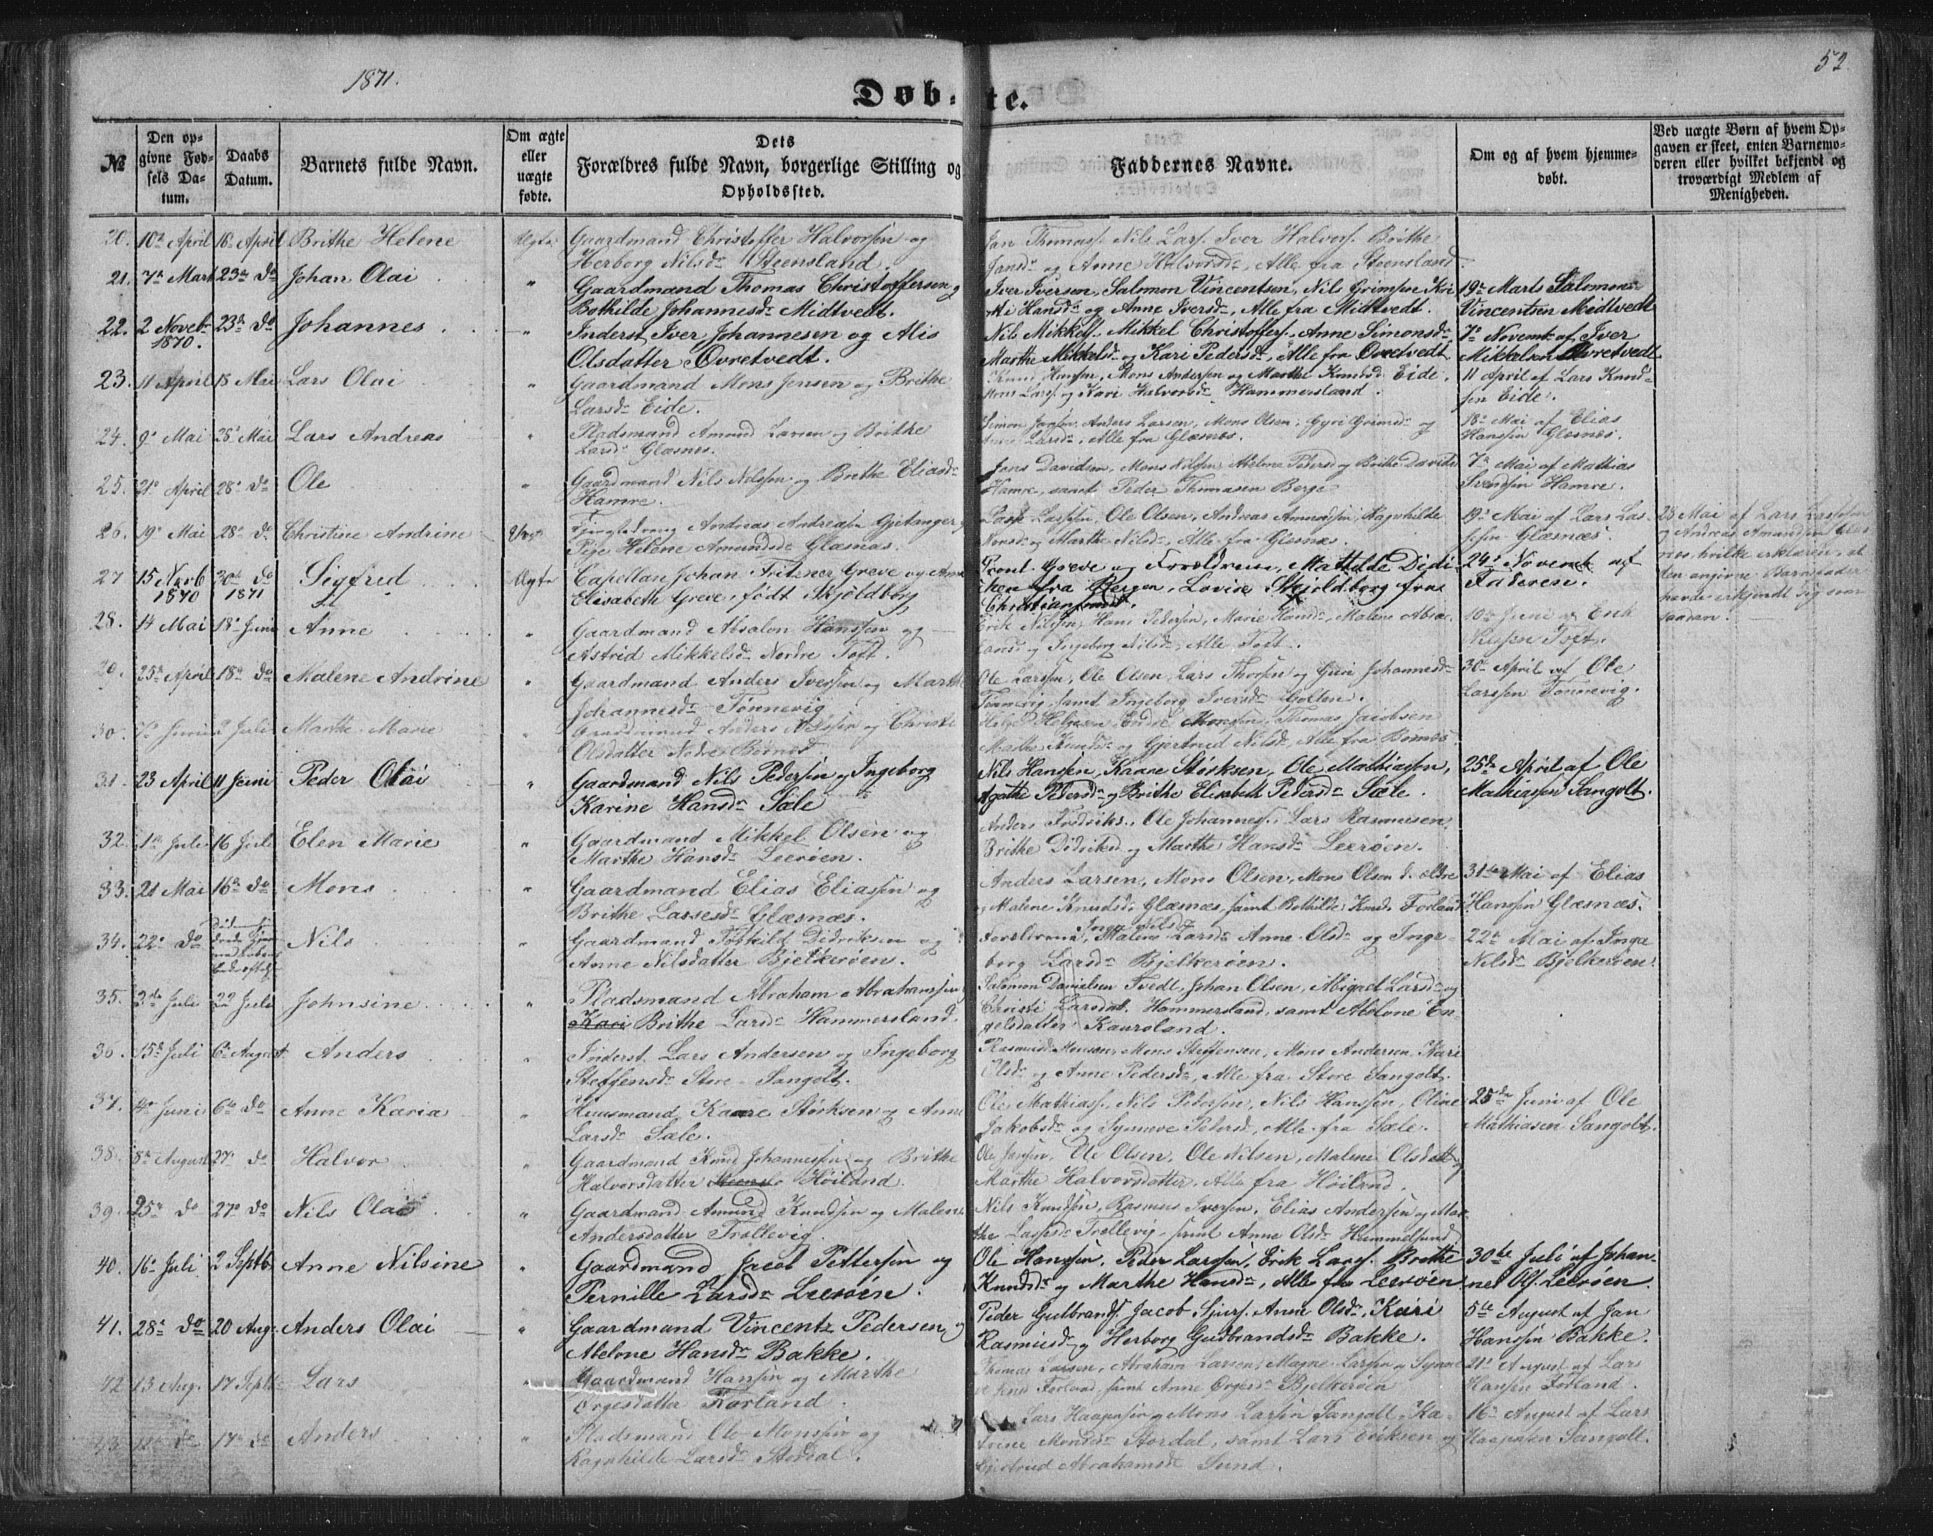 1871.
52
Døb- te.
№
Den op-
givne Fød-
sels Da-
tum.
Daabs
Datum.
Barnets fulde Navn.
Om ægte
eller
uægte
fødte.
Dets
Forældres fulde Navn, borgerlige Stilling og
Opholdssted.
Faddernes Navne.
Om og af hvem hjemme-
døbt.
Ved uægte Børn af hvem Op-
gaven er skeet, enten Barnemo-
deren eller hvilket bekjendt og
troværdigt Medlem af
Menigheden.
20. 10de April 16de April Brithe Helene Ægte Gaardmand Christoffer Halvorsen og
Herborg Nilsdr Steensland.
Jan Thomass. Nils Lars. Iver Halvors. Brithe
Jansdr og Anne Halvorsdr, Alle fra Steensland.
21. 7de Mart 23de do Johan Olai " Gaardmand Thomas Christoffersen og
Bothilde Johannesdr Midtvedt.
Iver Iversen, Salomon Vincentsen, Nils Grimsen
Hansdr og Anne Iversdr, Alle fra Midtvedt.
19de Marts Salomon
Vincentsen Midtvedt
22. 2 Novebr 23de do Johannes " Inderst Iver Johannesen og Alis
1870.
Olsdatter Øvretvedt.
Nils Mikkels. Mikkel Christoffers. Anne Simonsdr
Marthe Mikkelsdr og Kari Pedersdr, Alle fra Øvretvedt
7de Novembr af Iver
Mikkelsen Øvretvedt
23. 11 April 18 Mai Lars Olai " Gaardmand Mons Jensen og Brithe
Larsdr Eide.
Knud Hanssen, Mons Andersen og Marthe Knudsd Eide.
Mons Lars. og Kari Halvorsdr Hammersland.
11 April af Lars Knud-
sen Eide.
24. 9de Mai 28de Mai Lars Andreas " Pladsmand Amund Larsen og Brithe
Larsdr Glæsnæs.
Simon Jansen, Anders Larsen, Mons Olsen, Gyri Grimsdr og
Anne Larsdr, Alle fra Glæsnæs.
18de Mai af Elias
Hanssen Glæsnæs.
25. 21de April 28de do Ole " Gaardmand Nils Nilssen og Brithe Eliasdr
Hamre.
Jens Davidsen, Mons Nilssen, Abelone Petersd og Brithe Davidsd
Hamre, samt Peder Thomasen Berge
7de Mai af Mathias
Svendsen Hamre.
26. 19de Mai 28de do Christine Andrine Uægt Andreas Andreasen Gjetanger
Pige Helene Amundsdr Glæsnæs.
Lasse Lassesen, Ole Olsen, Andreas Amundsen, Ragnhilde
Monsdr og Marthe Nilsdr, Alle fra Glæsnæs.
19de Mai af Lars Las-
sesen Glæsnæs.
28 Mai af Lars Lassesen
og Andreas Amundsen Glæs-
næs, hvilke erklærede, at
den angivne Barnefader
havde erkjendt sig som
saadan.
27 15 Novb 30de do Sigfrid Ægte Capellan Johan Fritzner Greve og Anne
1870 1871
Elisabeth Greve, født Skjoldborg
Greve og Forældrene, Mathilde Didi
ken fra Bergen, Lovise Skjoldborg fra
Christianssund.
24de Novembr af
Faderen.
28. 14 Mai 18de Juni Anne " Gaardmand Absalon Hanssen og
Astrid Mikkelsdr Nordre Toft.
Erik Nilssen, Hans Pedersen, Marie Hansdr, Malene Absa-
lonsdr og Ingeborg Nilsdr, Alle Toft.
10de Juni af Erik
Nilssen Toft.
29. 25de April 18de do Malene Andrine " Gaardmand Anders Iversen og Marthe
Johannesdr Tønnevig
Ole Larssen, Ole Olsen, Lars Thorsen og Guri Johannesdr
Tønnevig, samt Ingeborg Iversdr Golten.
30de April af Ole
Larssen Tønnevig.
30. Juni 2 Juli Marthe Marie " Gaardmand Anders Nilssen og Christi
Olsdatter Nedre Bornæs
Helge Helgesen, Endre Monssen, Thomas Jacobsen
Marthe Knudsdr og Gjertrud Nilsdr, Alle fra Bornæs
31. 23 April 11 Juni Peder Olai " Gaardmand Nils Pedersen og Ingeborg
Karine Hansdr Sæle
Nils Hanssen, Kaare Størksen, Ole Mathiassen,
Agathe Petersdr og Brithe Elisabeth Pedersdr Sæle.
25de April af Ole
Mathiassen Sangolt.
32. 1ste Juli 16 Juli Elen Marie " Gaardmand Mikkel Olsen og
Marthe Hansdr Leerøen.
Anders Fredriks., Ole Johannes., Lars Rasmusen,
Brithe Didriksd og Marthe Hansdr Leerøen.
33. 21 Mai 16de do Mons " Gaardmand Elias Eliassen og
Brithe Lassesdr Glæsnæs.
Anders Larsen, Mons Olsen, Mons Olsen d. ældre
og Malene Knudsdr Glæsnæs, samt Bothilde Knudsd Førland
31te Mai af Elias
Hanssen Glæsnæs.
34. 22de do Nils " Gaardmand Torkild Didriksen og
Anne Nilsdatter Bjelkerøen.
Inga Nilsdr
Forældrene, Malene Larsdr Anne Olsdr og Inge-
borg Larsdr Bjelkerøen.
22de Mai af Inga
Nilsdr Bjelkerøen.
35. 3de Juli 22 Juli Johnsine " Pladsmand Abraham Abrahamsen og
Kari Brithe Larsdr Hammersland.
Salomon Danielsen Tvedt, Johan Olsen, Abigael Larsdr og
Christi Larsdat. Hammersland, samt Abelone En-
gelsdatter Kaursland.
36. 15de Juli 6te August Anders " Inderst Lars Andersen og Ingeborg
Steffensdr Store-Sangolt.
Rasmus Monsen, Mons Steffensen, Mons Andersen, Kari
Olsdr og Anne Pedersdr, Alle fra Store Sangolt.
37. 4de Juni 6te do Anne Karia " Huusmand Kaare Størksen og Anne
Larsdr Sæle.
Ole Mathiass. Nils Pedersen, Nils Hanssen, Oline
Jakobsdr og Synneve Petersd, Alle fra Sæle.
25de Juni af Ole
Mathiasen Sangolt.
38. 8de August 27de do Halvor " Gaardmand Knud Johannessen og Brithe
Halvorsdatter Høiland.
Ole Jansen, Ole Olsen, Ole Nilsen, Malene Olsdatt og
Marthe Halvorsdatter, Alle fra Høiland.
39. 25de do 27de do Nils Olai " Gaardmand Amund Knudsen og Malene
Andersdatter Trællevig.
Nils Knudsen, Rasmus Iversen, Elias Andersen og Mar-
the Lassesdr Trællevig, samt Anne Olsdr Hummelsund
40. 16de Juli 2 Septb. Anne Nilsine " Gaardmand Jacob Pettersen og
Pernille Larsdr Leerøen.
Ole Hanssen, Peder Larssen, Erik Lars. Brithe
Knudsdr og Marthe Hansdr, Alle fra Leerøen
30te Juli af Johan-
nes Ols. Leerøen.
41. 28de do 20 Aug. Anders Olai " Gaardmand Vincentz Pedersen og
Abelone Hansdr Bakke.
Peder Gulbrands. Jacob Sjurs. Anne Olsdr, Kari
Rasmusd og Herborg Gudbrandsdr Bakke.
5te August af Jan
Hanssen Bakke.
42 13 Aug. 17 Septbr Lars " Gaardmand Hanssen og Marthe
Ørgesdatter Førland.
Thomas Larsen, Abraham Larsen, Magne Larssen og Synne-
ve Knud Førland, samt Anne Ørgesdr Bjelkerøen
21de August af Lars
Hansen Førland.
43 12te do 17de do Anders " Pladsmand Ole Monssen og
Ragnhilde Larsdr Stordal.
Lars Haagensen, Mons Larsen Sangolt, Ka-
trine Monsdr Stordal, samt Lars Eriksen og
Gjertrud Abrahamsdr Sund.
16de August af Lars
Haagensen Sangolt.